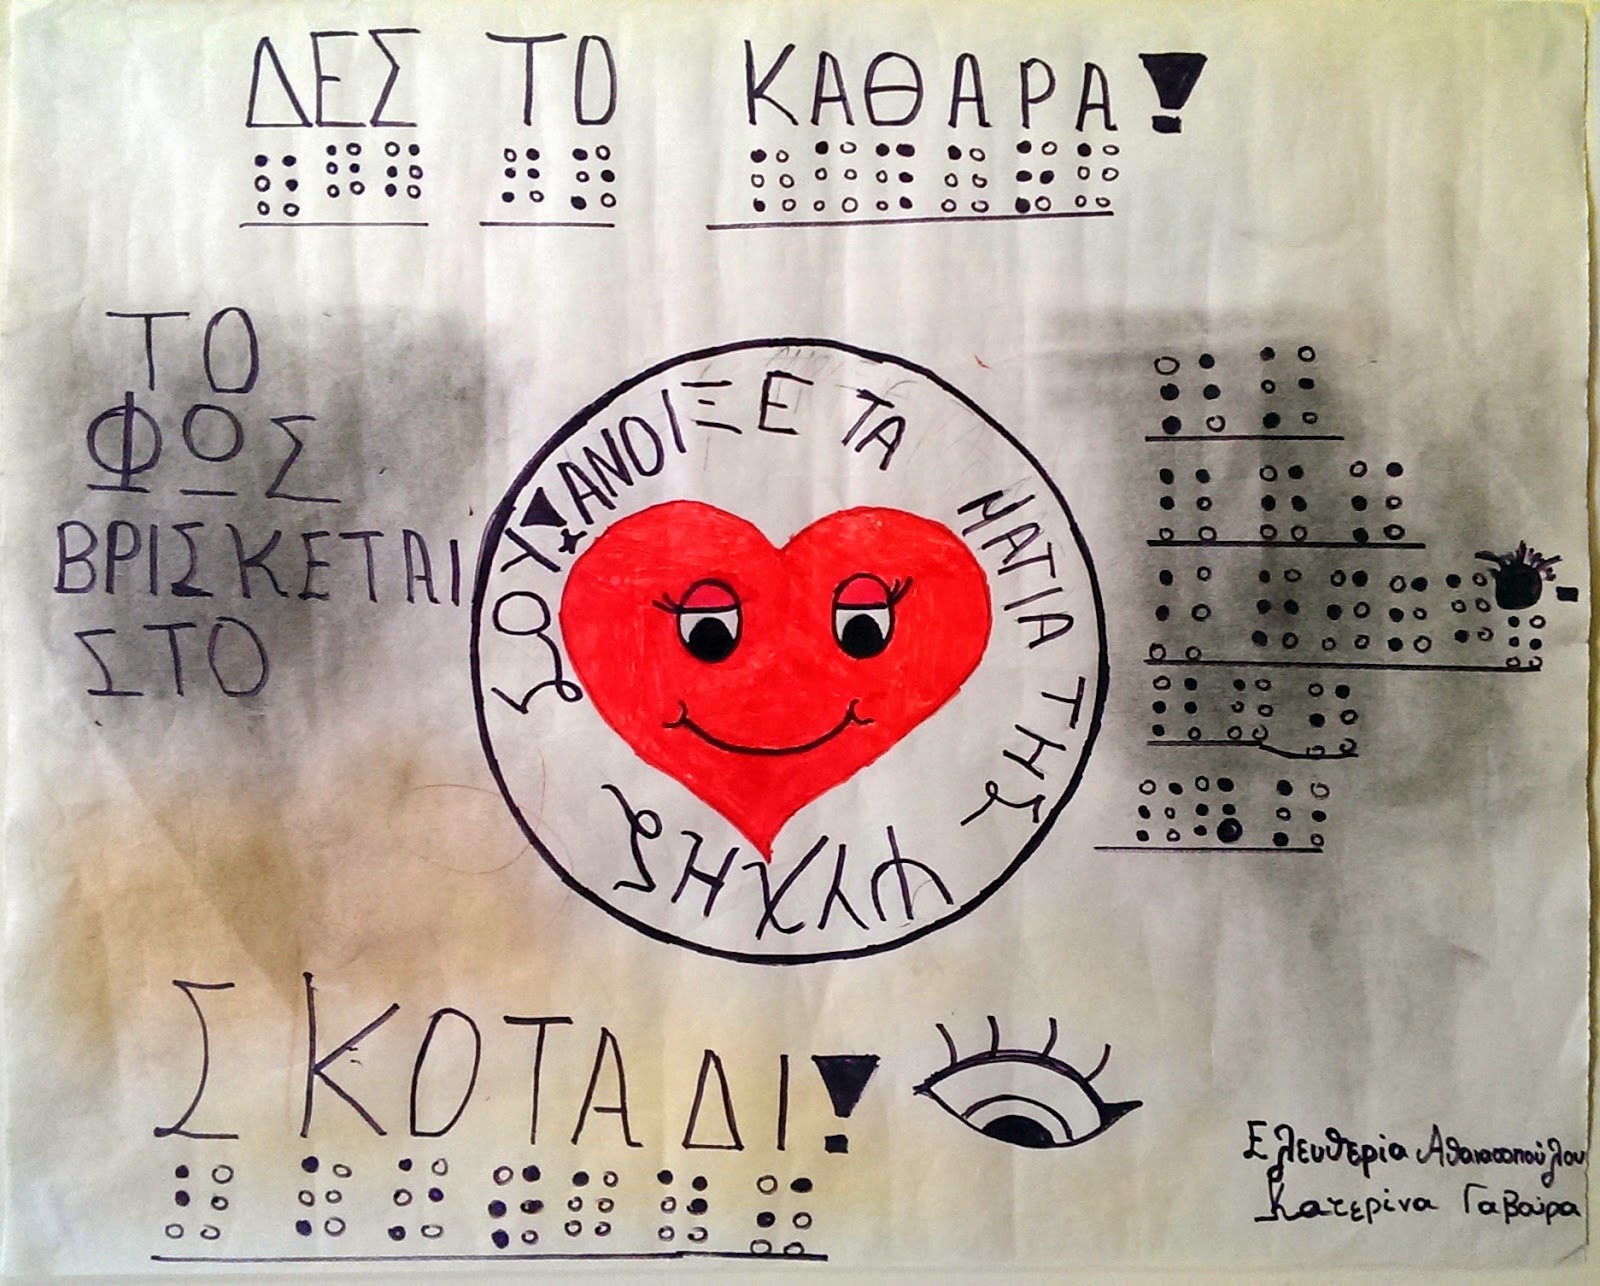 ΔΕΣ ΤΟ ΚΑΘΑΡΑ!
ΤΟ
ΦΩΣ
ΒΡΙΣΚΕΤΑΙ
ΣΤΟ
ΑΝΟΙΞΕ ΤΑ ΜΑΤΙΑ ΤΗς ΨΥΧΗς ΣΟΥ!
ΣΚΟΤΑΔΙ!
Ελευθερία Αθανασοπούλου
Κατερίνα Γαβαύρα